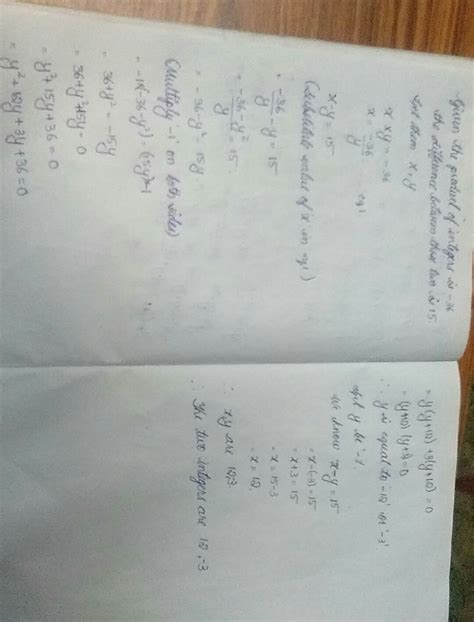 Given the product of integers is -36
the difference between those two is 15
let them x, y
x × y = -36
x = -36/y eq 1
x-y = 15
(substitute value of x in eq 1)
= -36/y - y = 15
= -36-y²/y = 15
= -36-y² = 15y
(Multiply -1 on both sides)
= -1(-36-y²) = (15y)-1
= 36+y² = -15y
= 36+y²+15y = 0
= y²+15y+36 = 0
= y²+12y+3y+36=0
= y(y+12)+3(y+12) = 0
= (y+12) (y+3)=0
∴ y is equal to '-12' or '-3'
let y be '-3'
we know x-y = 15
= x-(-3) = 15
= x+3 = 15
= x = 15-3
= x = 12.
∴ x,y are 12,-3
∴ The two integers are 12,-3